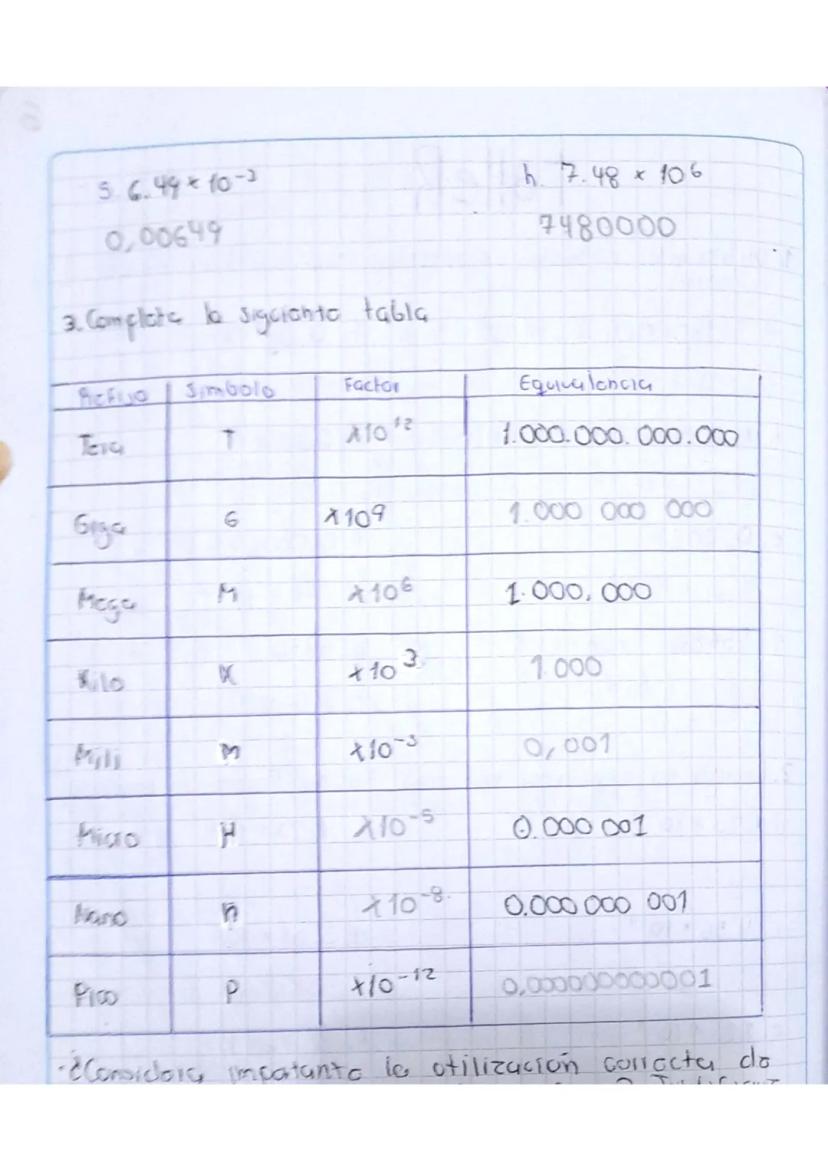 5. 6.49 × 10⁻³ h. 7.48 × 10⁶
0,00649 7480000
3. Completa la siguiente tabla
Prefijo Simbolo Factor Equivalencia
Tera T ×10¹² 1.000.000.000.000
Giga G ×10⁹ 1.000 000 000
Mega M ×10⁶ 1.000.000
Kilo K ×10³ 1.000
Mili m ×10⁻³ 0,001
Micro μ ×10⁻⁵ 0.000 001
Nano n ×10⁻⁸ 0.000 000 001
Pico P ×10⁻¹² 0,000000000001
·¿Considera impotante la otilización correcta de